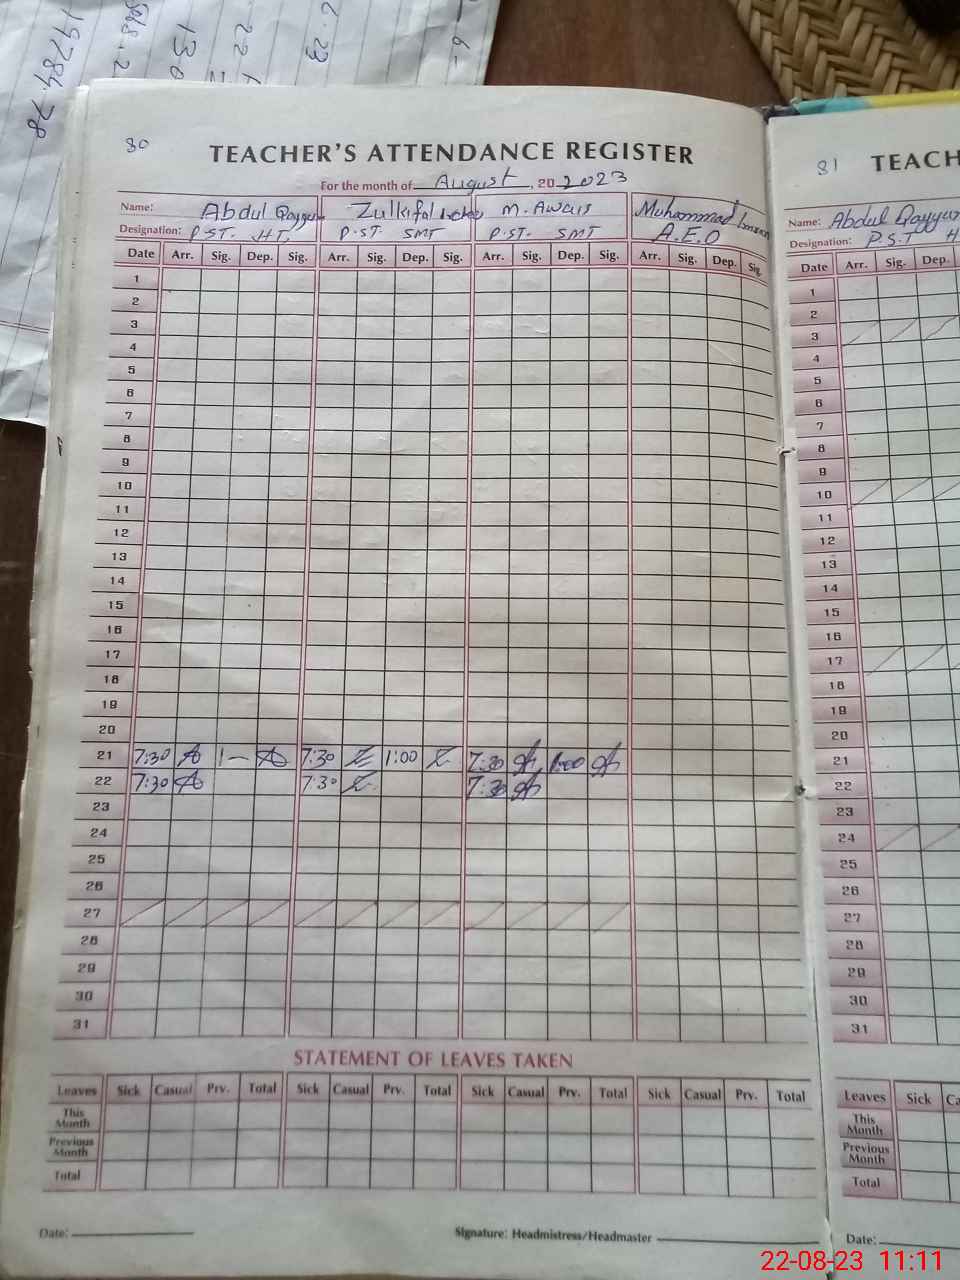 2-6-
2.23
22
130
Sels.2
19784.78
80
TEACHER'S ATTENDANCE REGISTER
For the month of August, 20 2023
Name: Abdul Qayyum Zulkifal M. Awais Muhammad Imran
Designation: P.ST. HT. P.ST. SMT P.ST. SMT A.E.O
Date Arr. Sig. Dep. Sig. Arr. Sig. Dep. Sig. Arr. Sig. Dep. Sig. Arr. Sig. Dep. Sig.
1
2
3
4
5
6
7
8
9
10
11
12
13
14
15
16
17
18
19
20
21 7:30 1— 7:30 1:00 7:30 1:00
22 7:30 7:30 7:30
23
24
25
26
27
28
29
30
31
STATEMENT OF LEAVES TAKEN
Leaves Sick Casual Prv. Total Sick Casual Prv. Total Sick Casual Prv. Total Sick Casual Prv. Total
This
Month
Previous
Month
Total
Date: Signature: Headmistress/Headmaster
81
TEACH
Name: Abdul Qayyum
Designation: P.S.T H
Date Arr. Sig. Dep.
1
2
3
4
5
6
7
8
9
10
11
12
13
14
15
16
17
18
19
20
21
22
23
24
25
26
27
28
29
30
31
Leaves Sick Ca
This
Month
Previous
Month
Total
Date:
22-08-23 11:11